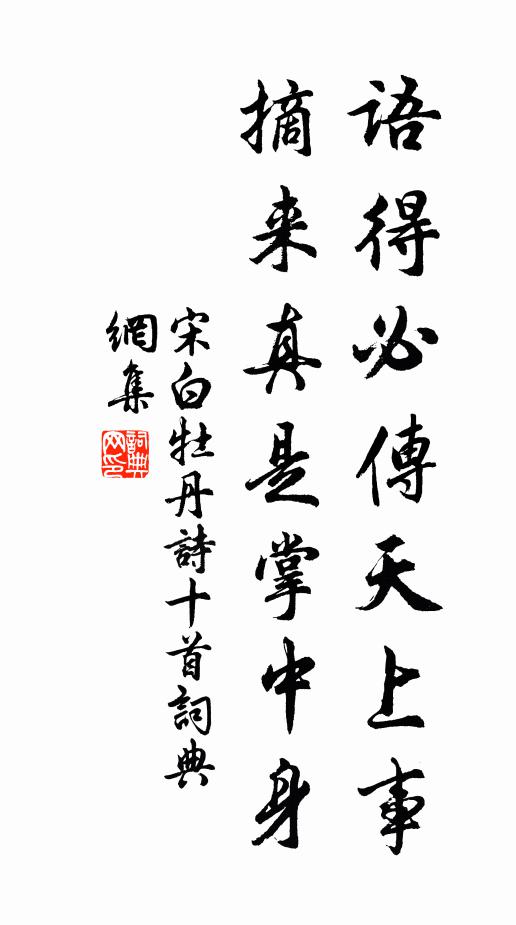 語得必傳天上事
摘来真是掌中身
宋白牡丹詩十首詞典
網集
詞典
网印